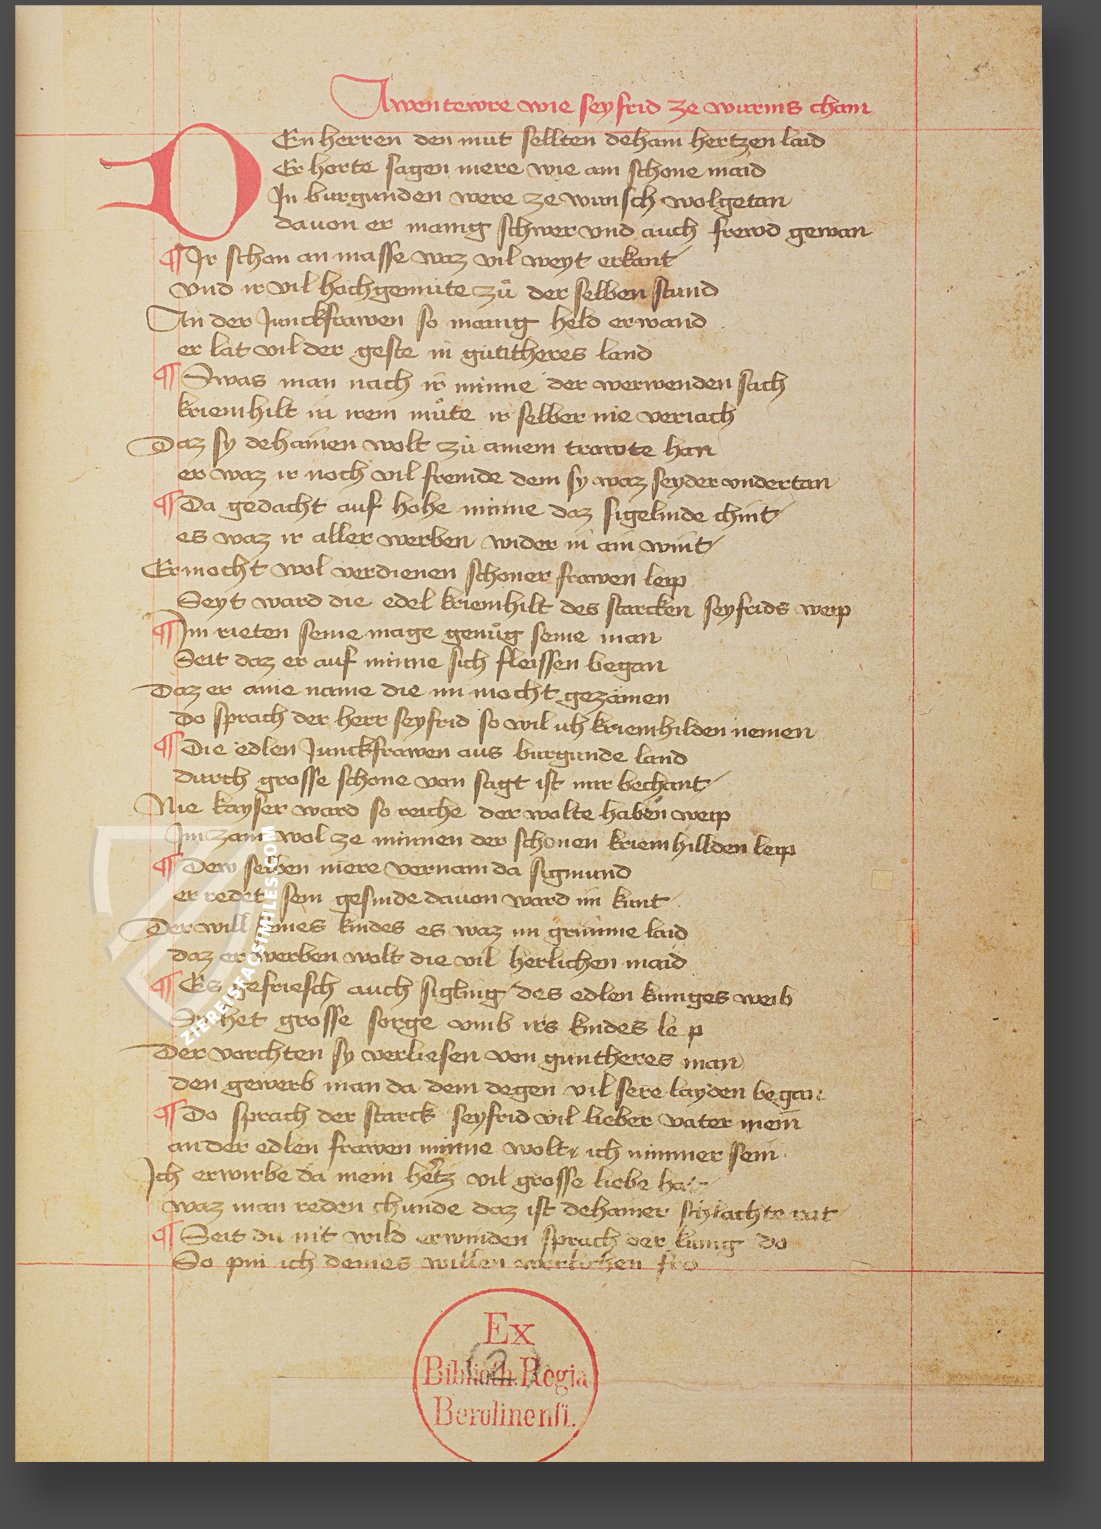 Awentewre wie seyfrid ze wurms cham
DEn herren den mut sellten deham hertzen laid
Er horte sagen mere wie ain schone maid
In burgunden were ze wunsch wolgetan
dauon er manig schwer vnd auch frewd gewan
¶ Ir schon an masse waz vil weyt erkant
vnd ir vil hochgemüte zů der selben stund
An der Junckfrawen so manig held erwand
er lat vil der geste in guntheres land
¶ Swas man nach ir minne der werwenden sach
kriemhilt in irem můte ir selber nie veriach
Daz sy dehainen wolt zů ainem trawte han
er waz ir noch vil fremde dem sy waz seyder vndertan
¶ Da gedacht auf hohe minne daz sigelinde chint
es waz ir aller werben wider in ain wint
Er mocht wol verdienen schoner frawen leip
Seyt ward die edel kriemhilt des starcken seyfrids weip
¶ Im rieten seine mage genůg seine man
Seit daz er auf minne sich fleissen began
Daz er aine name die im mocht gezämen
Do sprach der herr seyfrid so wil ich kriemhilden nemen
¶ Die edlen Junckfrawen aus burgunde land
durch grosse schone von sagt ist mir bechant
Nie kayser ward so reiche der wolte haben weip
Im zam wol ze minnen der schonen kriemhillden leip
¶ Dew selben mere vernam da sigmund
er redet sein gesinde dauon ward im kunt
Der will seines kindes es waz im grimme laid
daz er werben wolt die vil herlichen maid
¶ Es gefriesch auch sigling des edlen kuniges weib
Sy het grosse sorge vmb irs kindes leip
Der vorchten sy verliesen von guntheres man
den gewerb man da dem degen vil sere layden began
¶ Do sprach der starck seyfrid vil lieber vater mein
an der edlen frawen minne wolt ich nimmer sein
Ich erwirbe da mein hertz vil grosse liebe hat
waz man reden chunde daz ist dehainer schlachte rat
¶ Seit du nit wild erwinden sprach der kunig do
So pin ich deines willen werlichen fro
Ex
Biblioth. Regia
Berolinensi.
ZIEREISFACSIMILES.COM